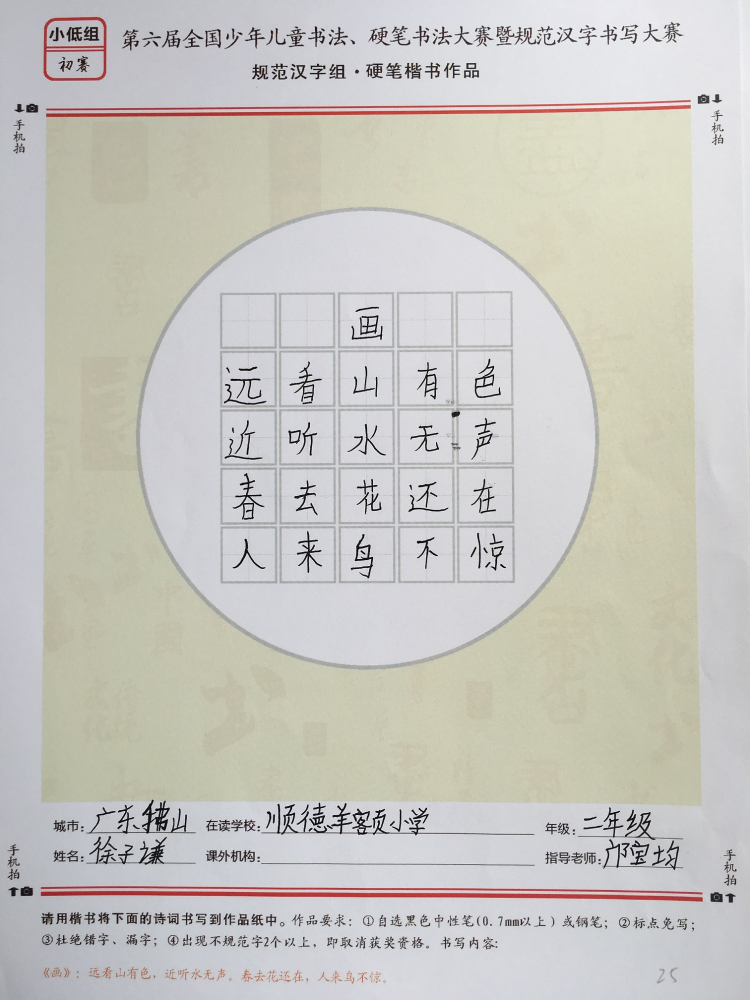 小低组
初赛
第六届全国少年儿童书法、硬笔书法大赛暨规范汉字书写大赛
规范汉字组·硬笔楷书作品
手机拍
手机拍
画
远看山有色
近听水无声
春去花还在
人来鸟不惊
城市：广东佛山 在读学校：顺德羊额小学 年级：二年级
姓名：徐子谦 课外机构： 指导老师：邝宝均
手机拍
手机拍
请用楷书将下面的诗词书写到作品纸中。作品要求：①自选黑色中性笔(0.7mm以上)或钢笔；②标点免写；
③杜绝错字、漏字；④出现不规范字2个以上，即取消获奖资格。书写内容：
《画》：远看山有色，近听水无声。春去花还在，人来鸟不惊。
25